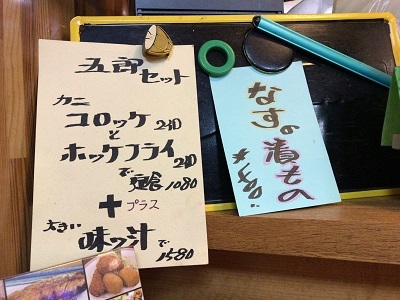 五郎セット
カニ
コロッケ2個
と
ホッケフライ2個
で定食1080
+プラス
大きい
味ッ汁で
1580
なすの
漬もの